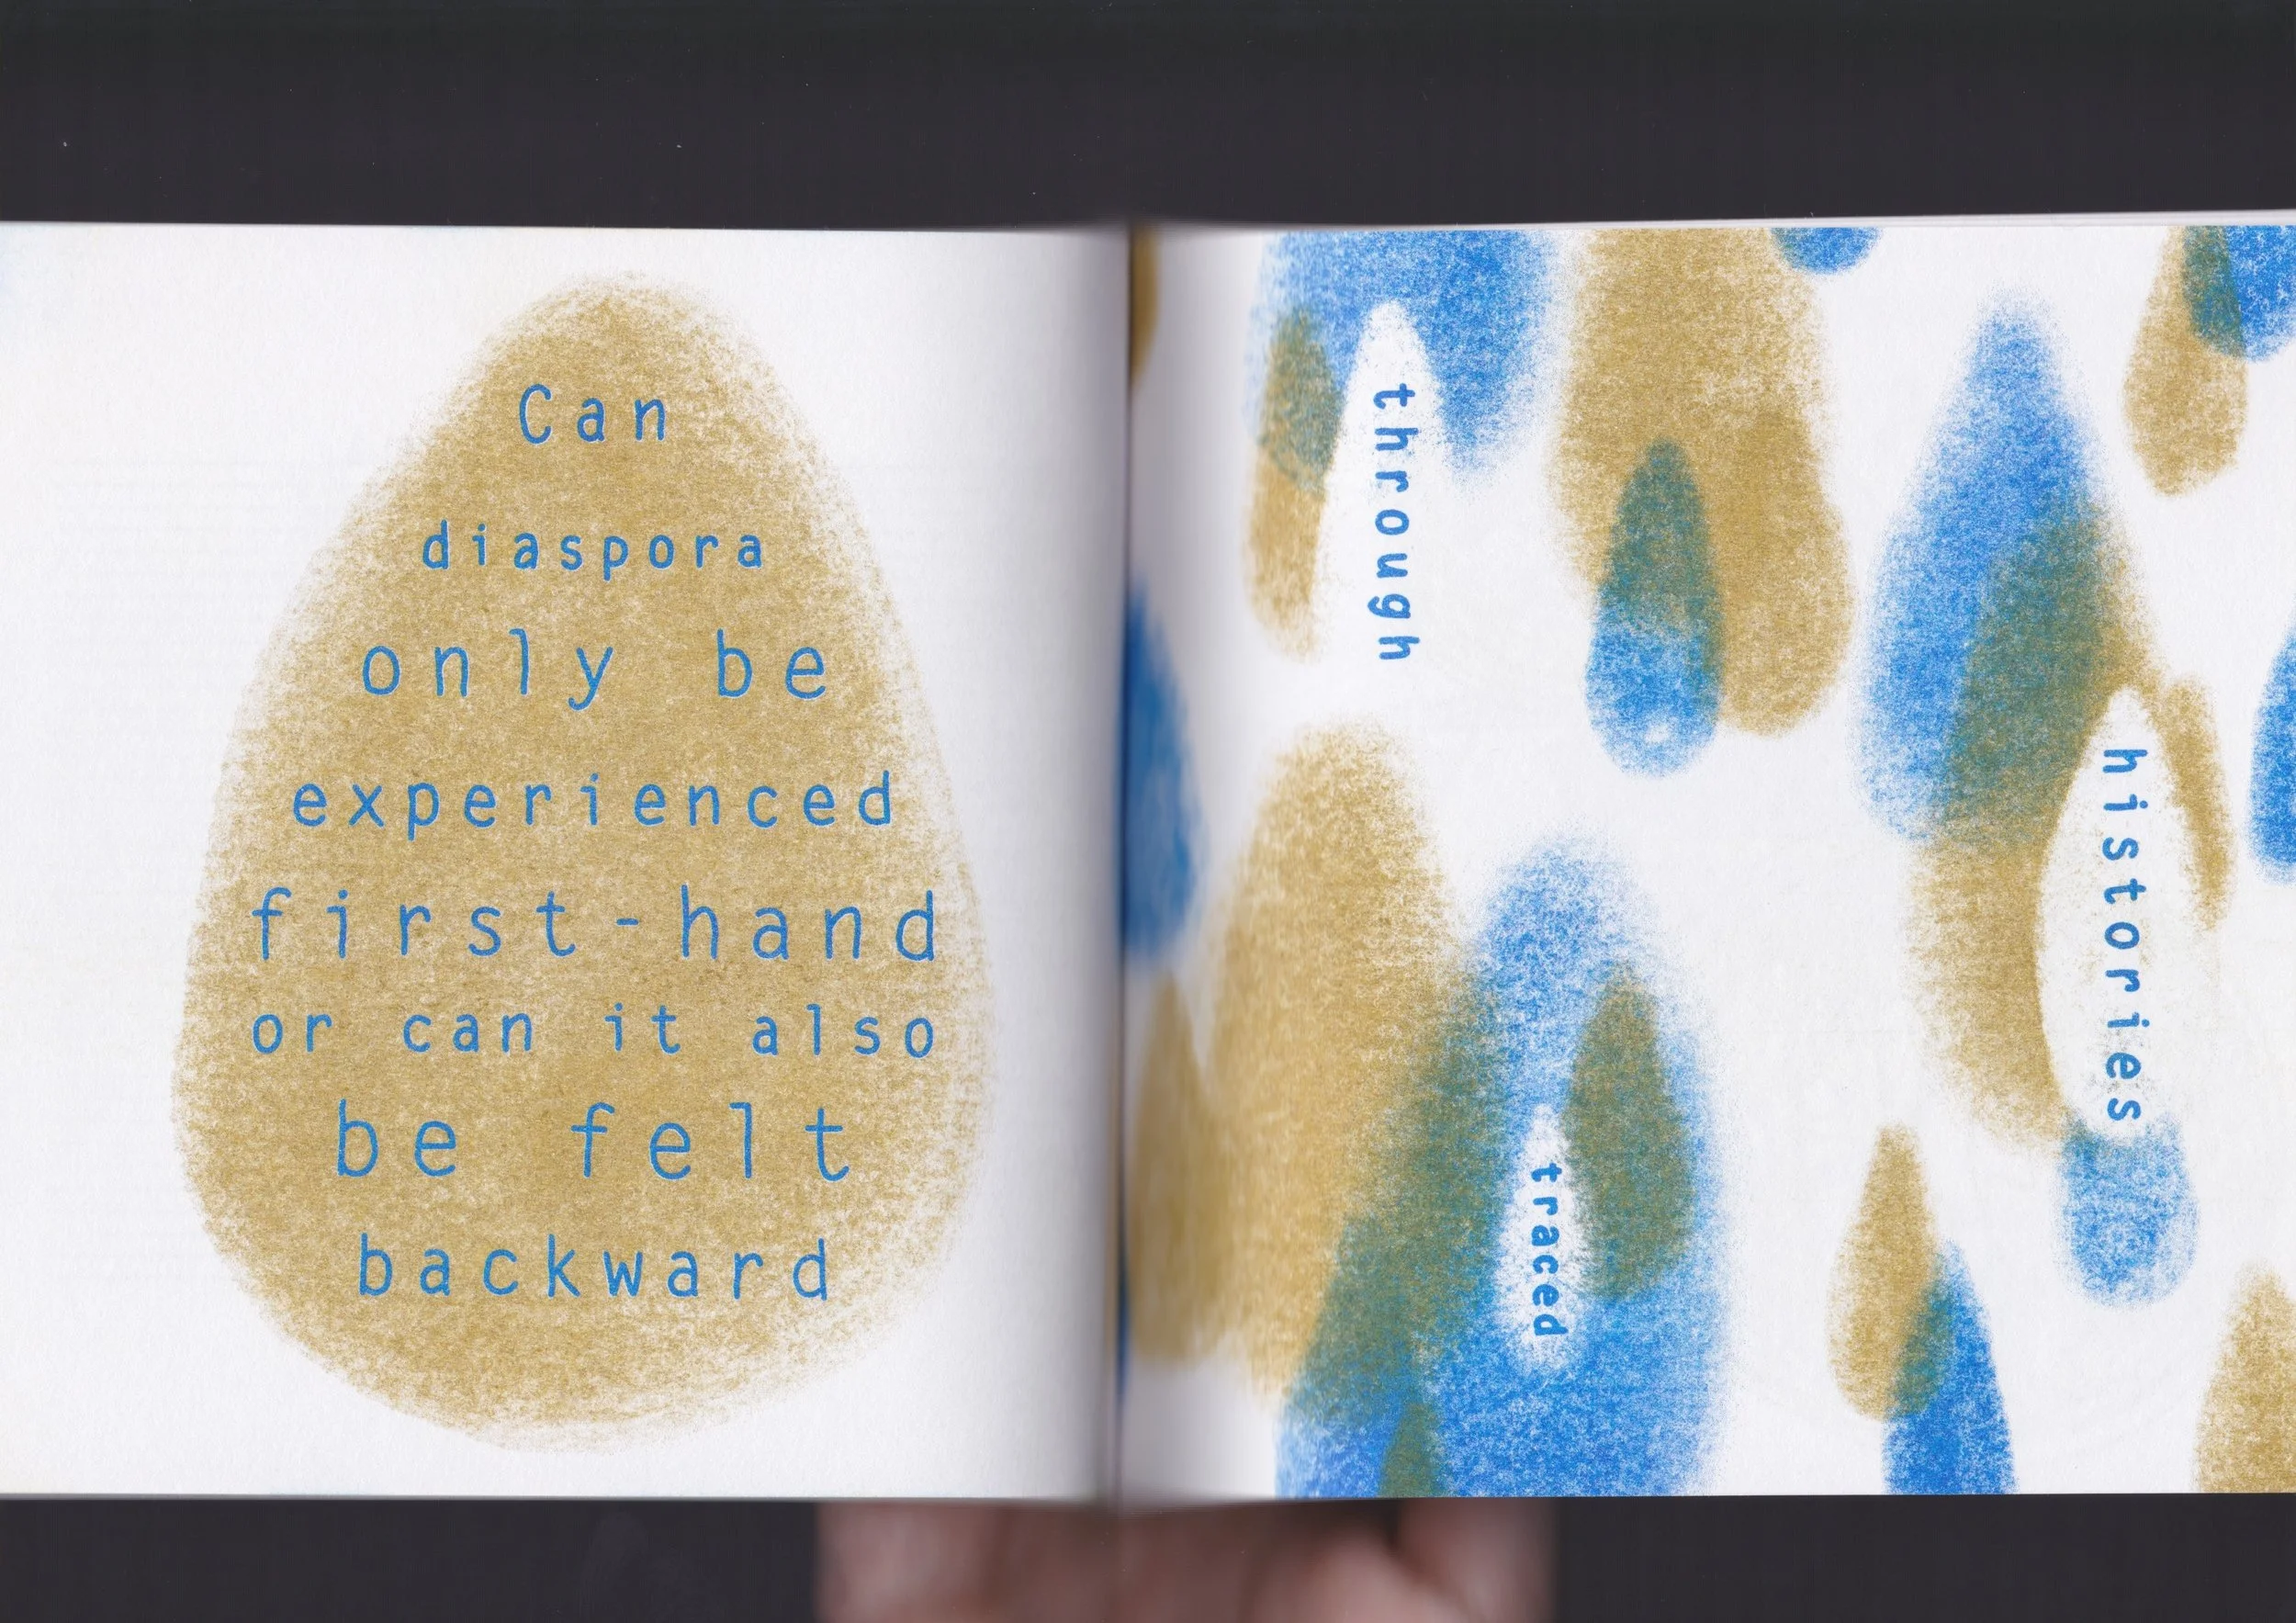 Can
diaspora
only be
experienced
first-hand
or can it also
be felt
backward
through
histories
traced